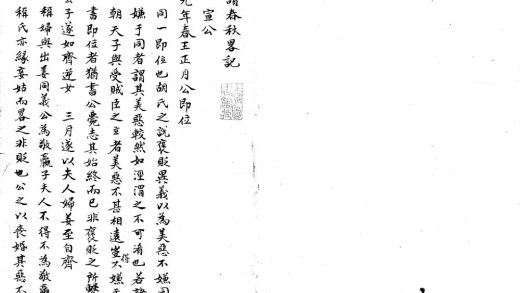 讀春秋畧記
宣公
元年春王正月公即位
同一即位也胡氏之説褒貶異義以為美惡不嫌同
嫌于同者謂其美惡較然如涇渭之不可淆也若
朝天子與受賊臣之立者美惡不甚相遠豈不嫌于
得
書即位者猶書公薨志其始終而已非褒貶之所繫
公子遂如齊逆女　三月遂以夫人婦姜至自齊
稱婦與出姜同義公為敬嬴子夫人不得不為敬嬴
稱氏亦緣妾姑而畧之非貶也公之以喪婚其惡不